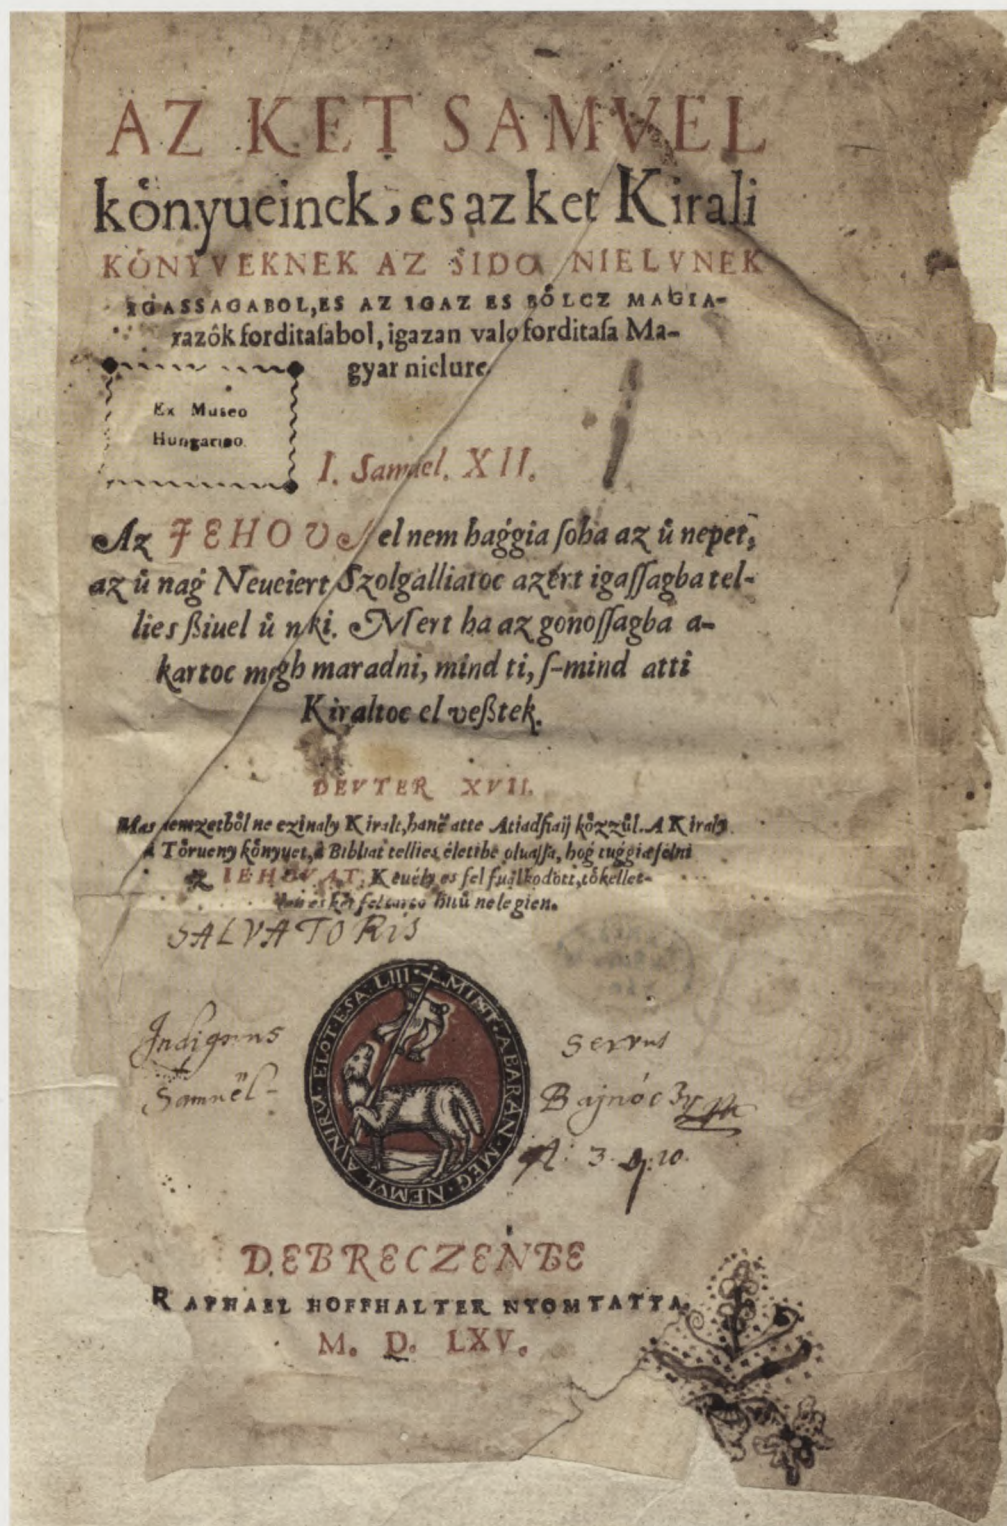 AZ KET SAMVEL
kőnyueinek, es az ket Kirali
KŐNYVEKNEK AZ SIDO NIELVNEK
IGASSAGABOL, ES AZ IGAZ ES BŐLCZ MAGIA-
razők forditaſabol, igazan valo forditaſa Ma-
gyar nielure
Ex Museo
Hungarico.
I. Samuel. XII.
Az JEHOVA el nem haggia ſoha az ű nepet,
az ű nag Neueiert Szolgalliatoc azért igaſſagba tel-
lies ßiuel ű nki. Mert ha az gonoſſagba a-
kartoc megh maradni, mind ti, ſ-mind atti
Kiraltoc el veßtek.
DEVTER XVII.
Mas nemzetből ne czinaly Kiralt, hanē atte Atiadfiaij kőzzűl. A Kiraly
a Tőrueny kőnyuet, a Bibliat tellies életibē oluaſſa, hog tuggia felni
IEHOVAT, Keuély es fel fualkodott, tőkellet-
len es két fele hitű ne legien.
SALVATORIS
MINT A BARAN MEG NEMVL A NIRV ELOT ESA LIII
Indignus Servus
Samuël Bajnóczy
A: 3. 9. 10.
DEBRECZENBE
RAPHAEL HOFFHALTER NYOMTATTA,
M. D. LXV.